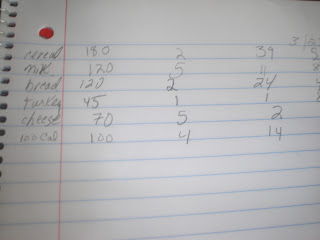 cereal 180 2 39
milk 120 5 11
bread 120 2 24
turkey 45 1 1
cheese 70 5 2
100 cal 100 4 14